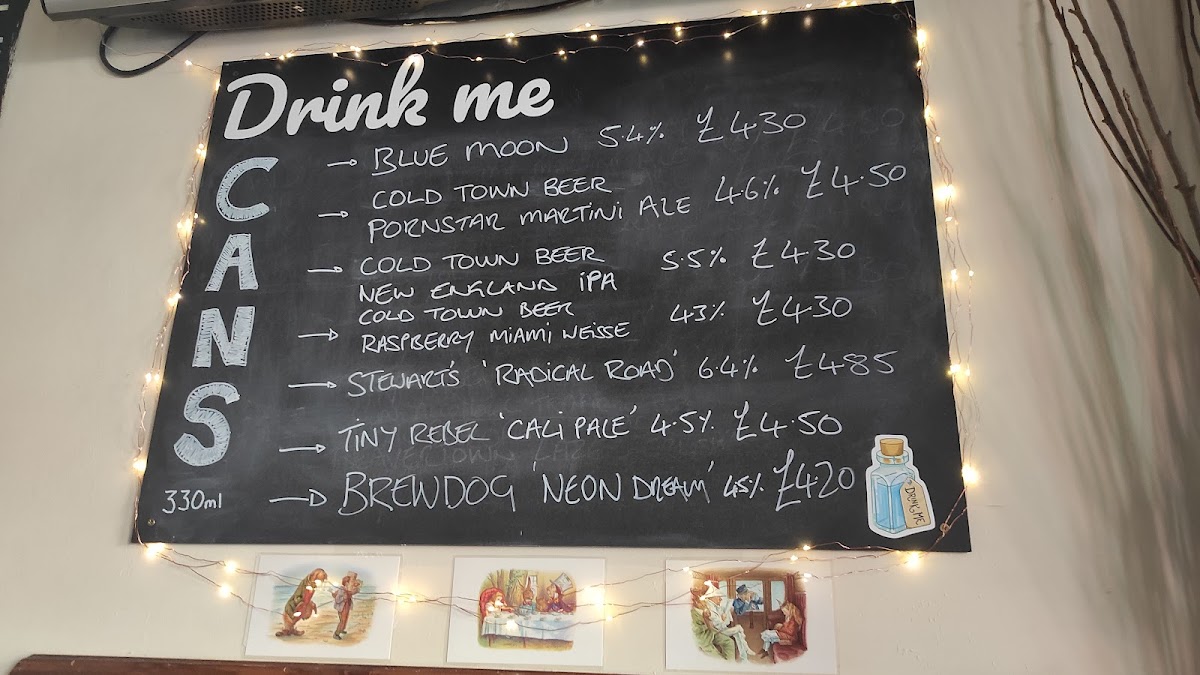 Drink me
CANS
→ BLUE MOON 5.4% £4.30
COLD TOWN BEER
→ PORNSTAR MARTINI ALE 4.6% £4.50
→ COLD TOWN BEER 5.5% £4.30
NEW ENGLAND IPA
COLD TOWN BEER
→ RASPBERRY MIAMI WEISSE 4.3% £4.30
→ STEWART'S 'RADICAL ROAD' 6.4% £4.85
→ TINY REBEL 'CALI PALE' 4.5% £4.50
→ BREWDOG 'NEON DREAM' 4.5% £4.20
330ml
DRINK ME